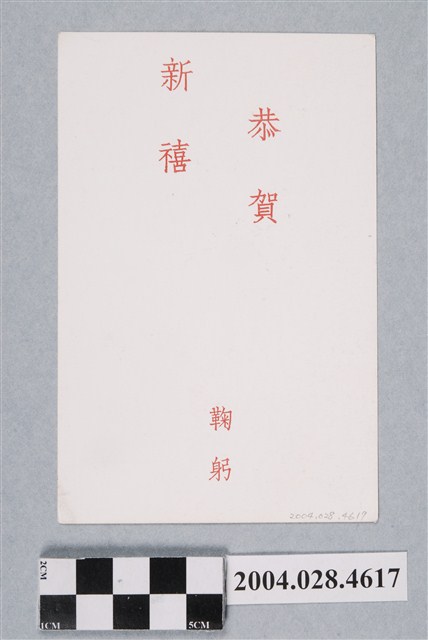 恭賀
新禧
鞠躬
2004.028.4617
2CM
1CM
5CM
2004.028.4617